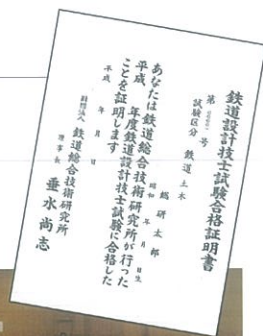 鉄道設計技士試験合格証明書
第 号
試験区分 鉄道土木
総研太郎
昭和 年 月 日生
あなたは鉄道総合技術研究所が行った
平成 年度鉄道設計技士試験に合格した
ことを証明します
平成 年 月 日
財団法人 鉄道総合技術研究所
理事長 垂水尚志